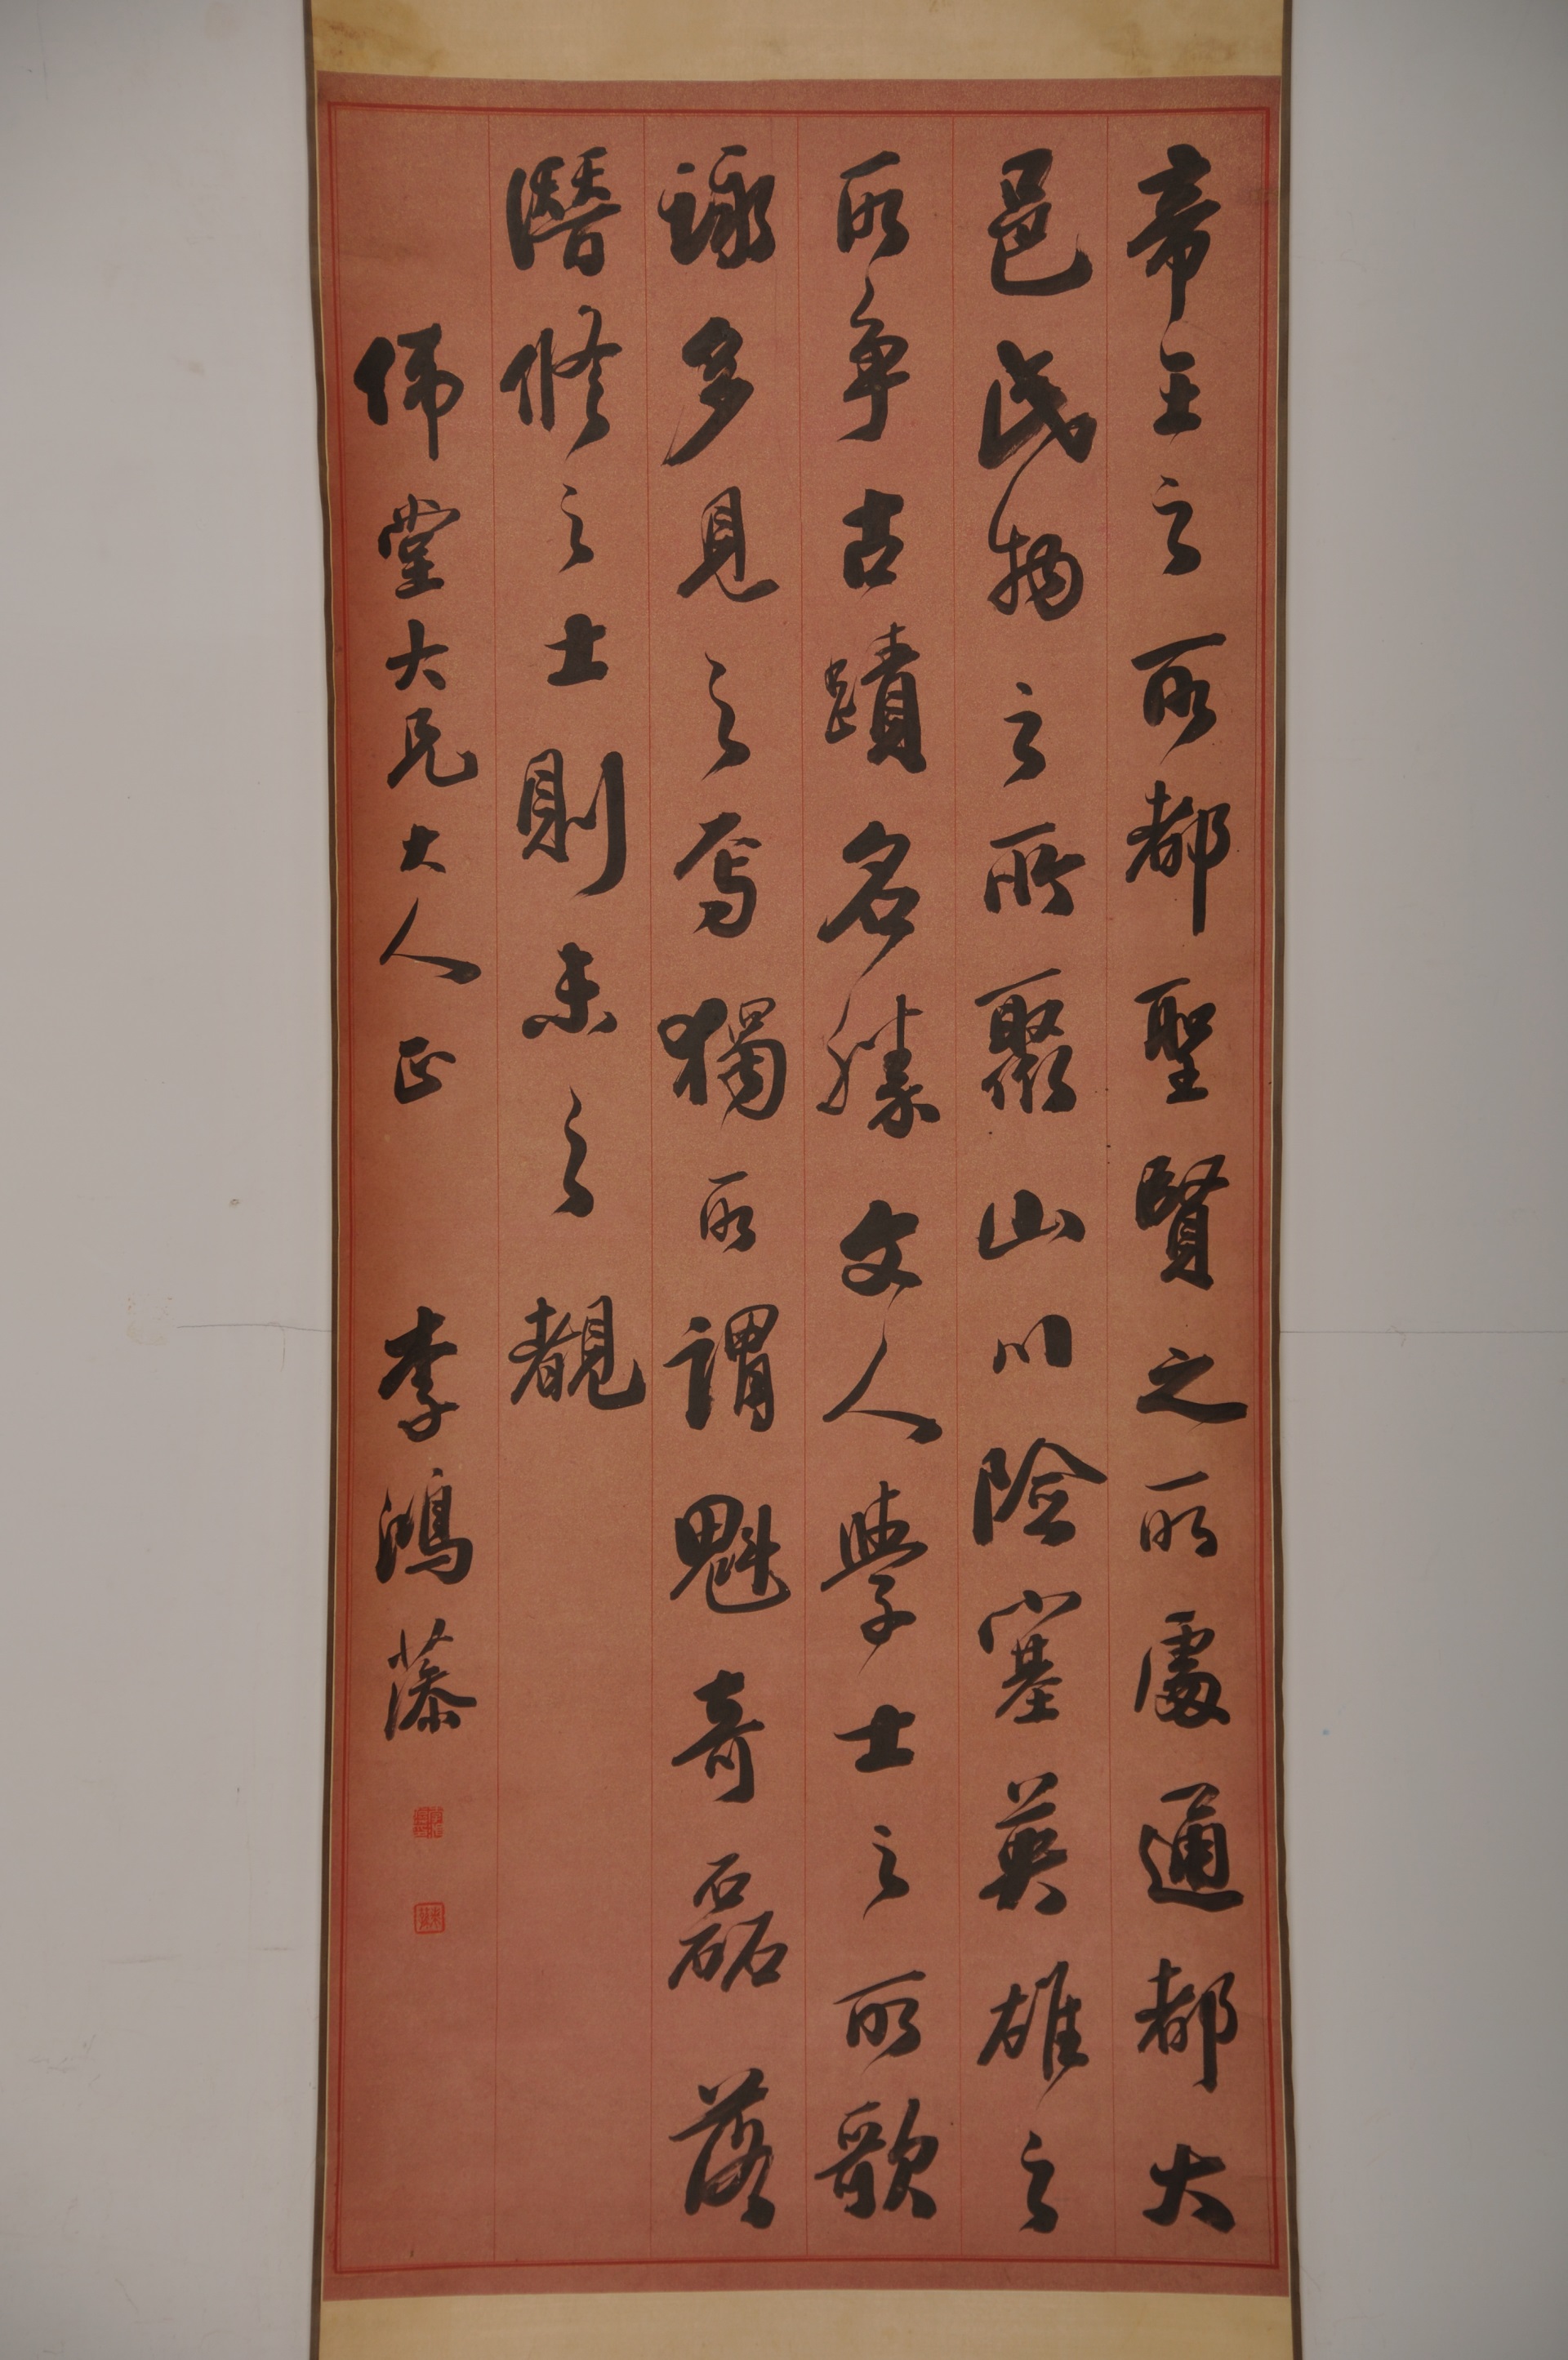 帝王之所都聖賢之所處通都大
邑民物之所聚山川險塞英雄之
所爭古蹟名勝文人學士之所歌
詠多見之焉獨所謂魁奇磊落
潛修之士則未之覩
佛堂大兄大人正 李鴻藻